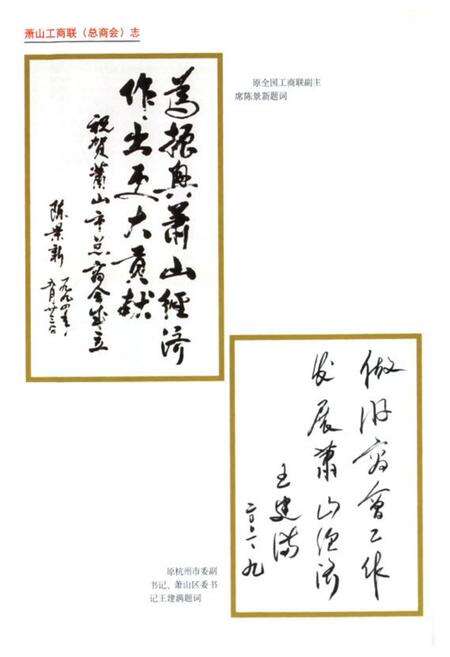 萧山工商联（总商会）志
原全国工商联副主
席陈景新题词
為振興萧山經济
作出更大贡献
祝贺萧山市总商会成立
陈景新
一九九四年
五月廿三日
做好商會工作
发展萧山经济
王建满
二〇〇一、九
原杭州市委副
书记、萧山区委书
记王建满题词